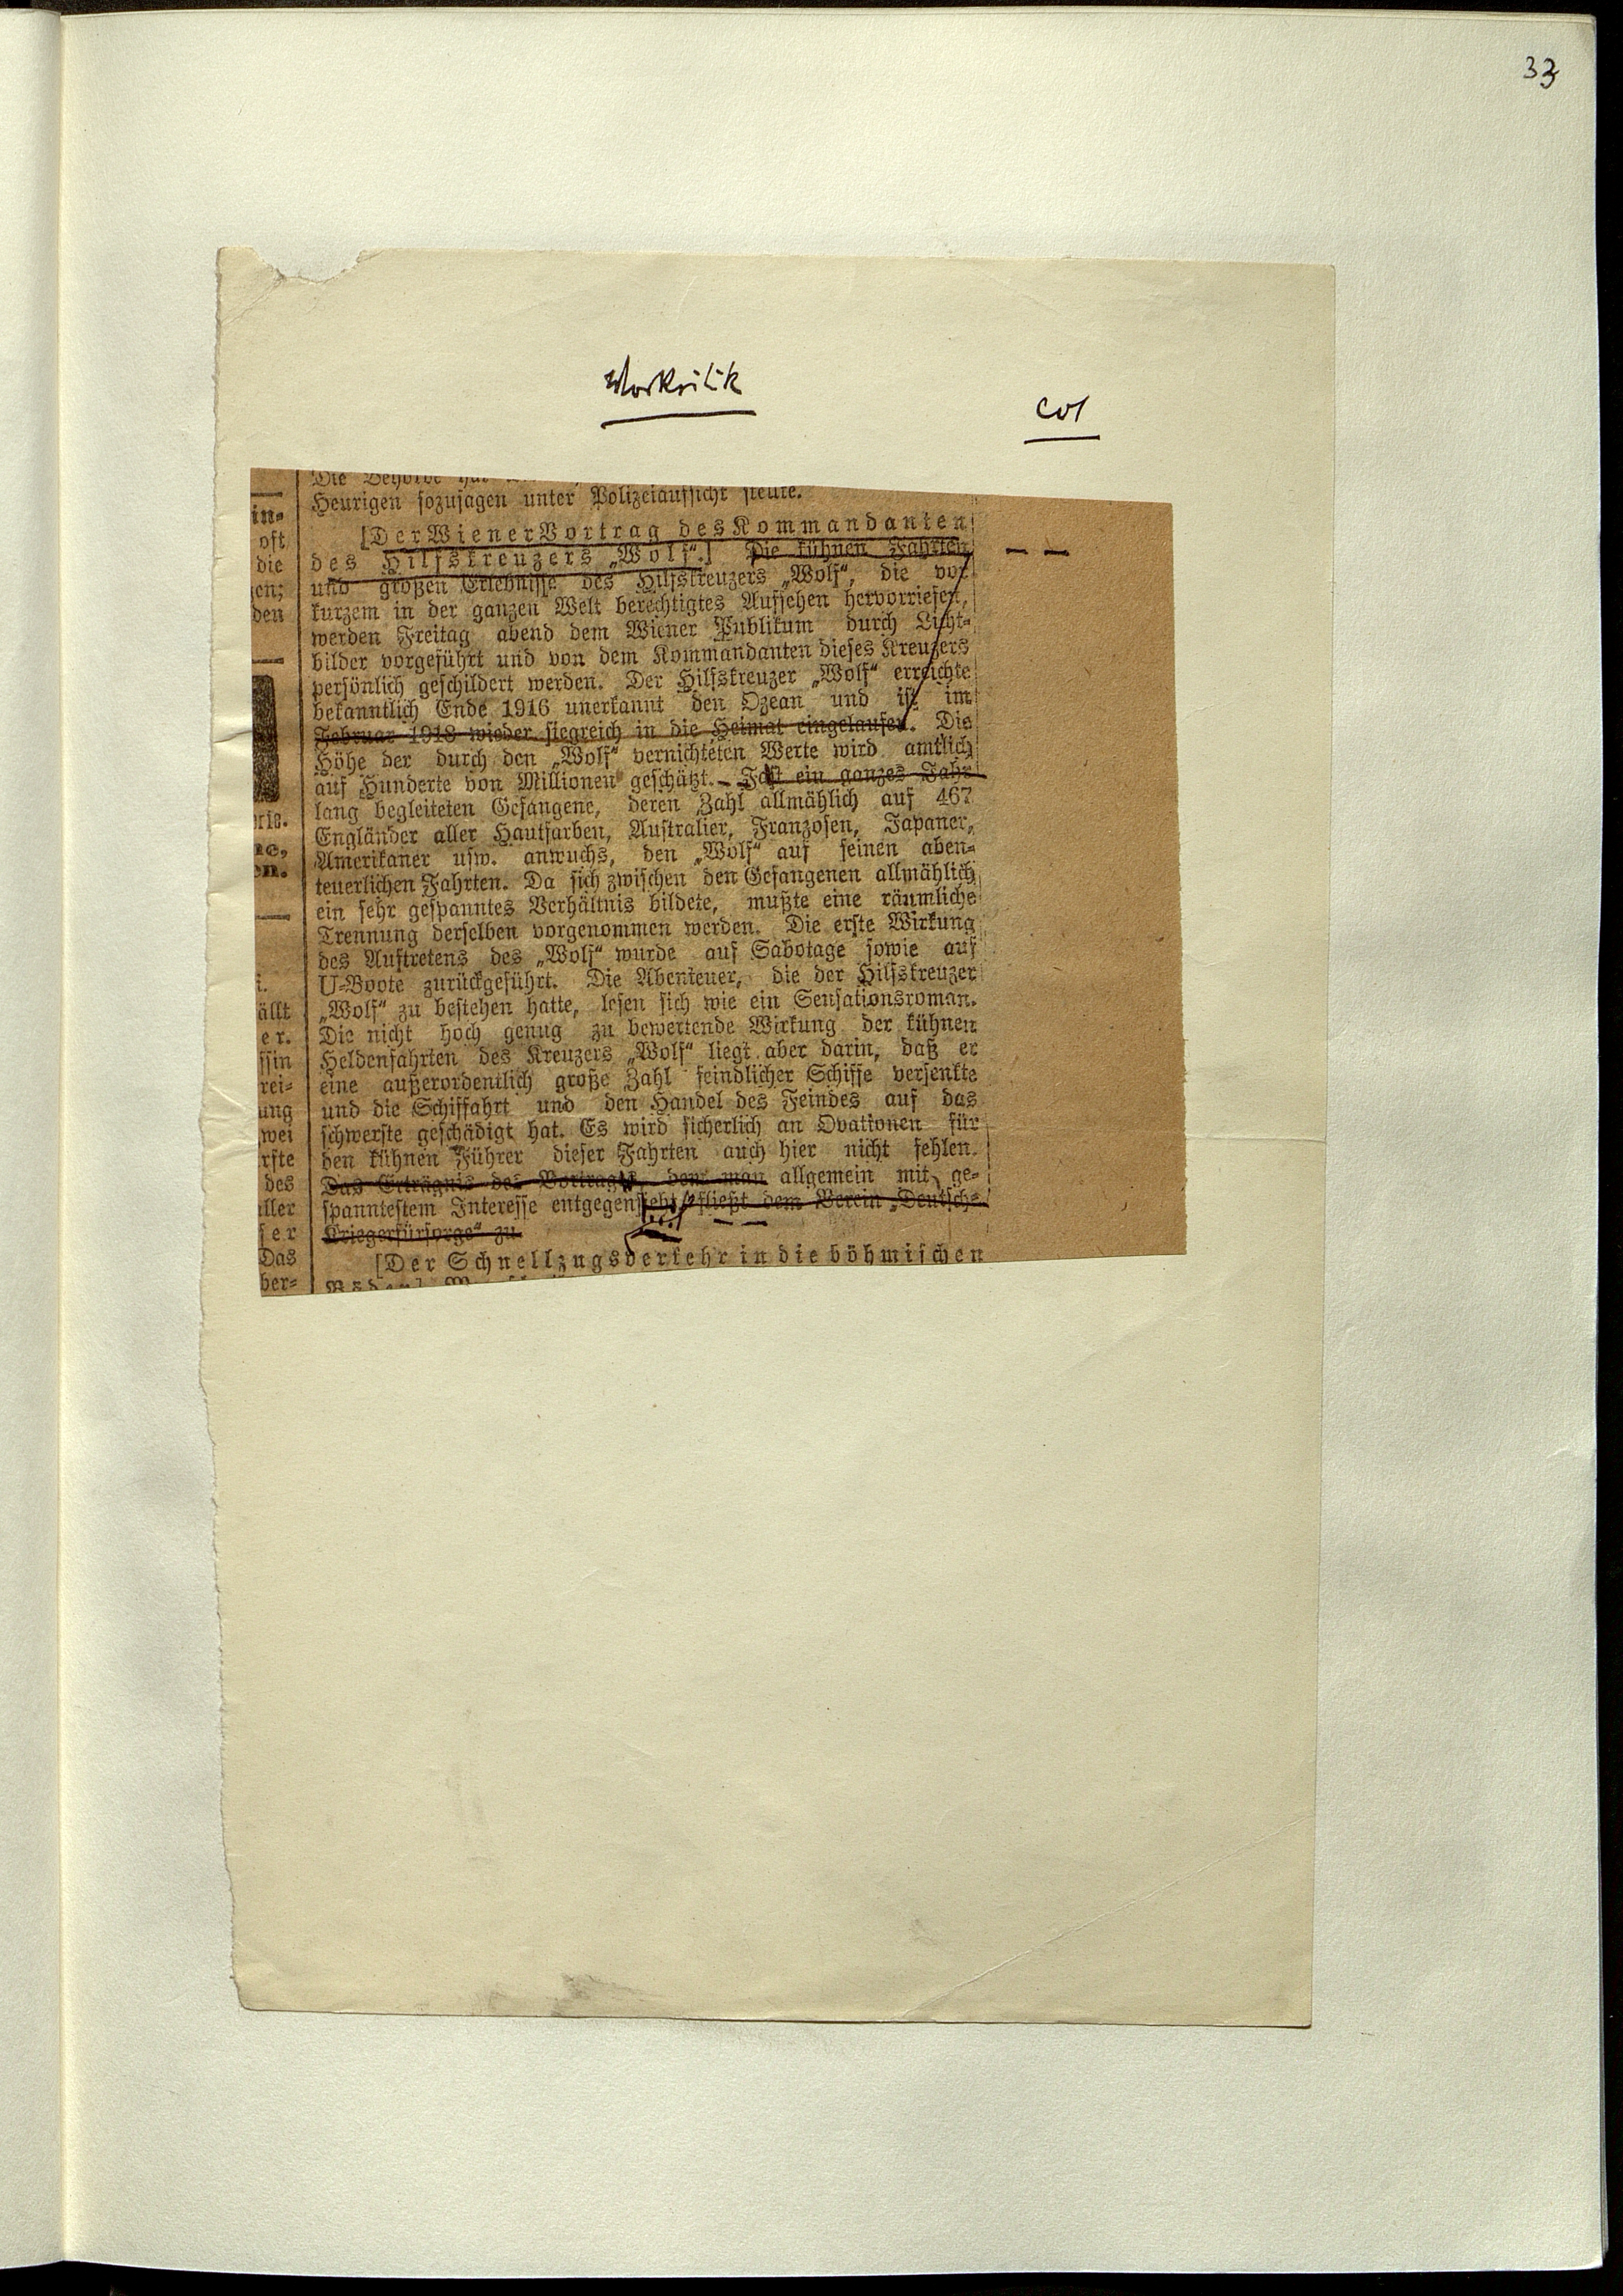 33
Vorkritik
col
Heurigen sozusagen unter Polizeiaufsicht stellte.
[Der Wiener Vortrag des Kommandanten
des Hilfskreuzers „Wolf“.] Die kühnen Fahrten
und großen Erlebnisse des Hilfskreuzers „Wolf“, die vor
kurzem in der ganzen Welt berechtigtes Aufsehen hervorriefen,
werden Freitag abend dem Wiener Publikum durch Licht-
bilder vorgeführt und von dem Kommandanten dieses Kreuzers
persönlich geschildert werden. Der Hilfskreuzer „Wolf“ erreichte
bekanntlich Ende 1916 unerkannt den Ozean und ist im
Februar 1918 wieder siegreich in die Heimat eingelaufen. Die
Höhe der durch den „Wolf“ vernichteten Werte wird amtlich
auf Hunderte von Millionen geschätzt. – Fast ein ganzes Jahr
lang begleiteten Gefangene, deren Zahl allmählich auf 467
Engländer aller Hautfarben, Australier, Franzosen, Japaner,
Amerikaner usw. anwuchs, den „Wolf“ auf seinen aben-
teuerlichen Fahrten. Da sich zwischen den Gefangenen allmählich
ein sehr gespanntes Verhältnis bildete, mußte eine räumliche
Trennung derselben vorgenommen werden. Die erste Wirkung
des Auftretens des „Wolf“ wurde auf Sabotage sowie auf
U-Boote zurückgeführt. Die Abenteuer, die der Hilfskreuzer
„Wolf“ zu bestehen hatte, lesen sich wie ein Sensationsroman.
Die nicht hoch genug zu bewertende Wirkung der kühnen
Heldenfahrten des Kreuzers „Wolf“ liegt aber darin, daß er
eine außerordentlich große Zahl feindlicher Schiffe versenkte
und die Schiffahrt und den Handel des Feindes auf das
schwerste geschädigt hat. Es wird sicherlich an Ovationen für
den kühnen Führer dieser Fahrten auch hier nicht fehlen.
Das Erträgnis des Vortrages, dem man allgemein mit ge-
spanntestem Interesse entgegensieht, fließt dem Verein „Deutsch-
Kriegerfürsorge“ zu.
[Der Schnellzugsverkehr in die böhmischen
in-
oft
die
gen;
den
ne,
en.
i.
ällt
er.
ssin
rei-
ung
wei
rste
des
ller
ser
Das
ber-